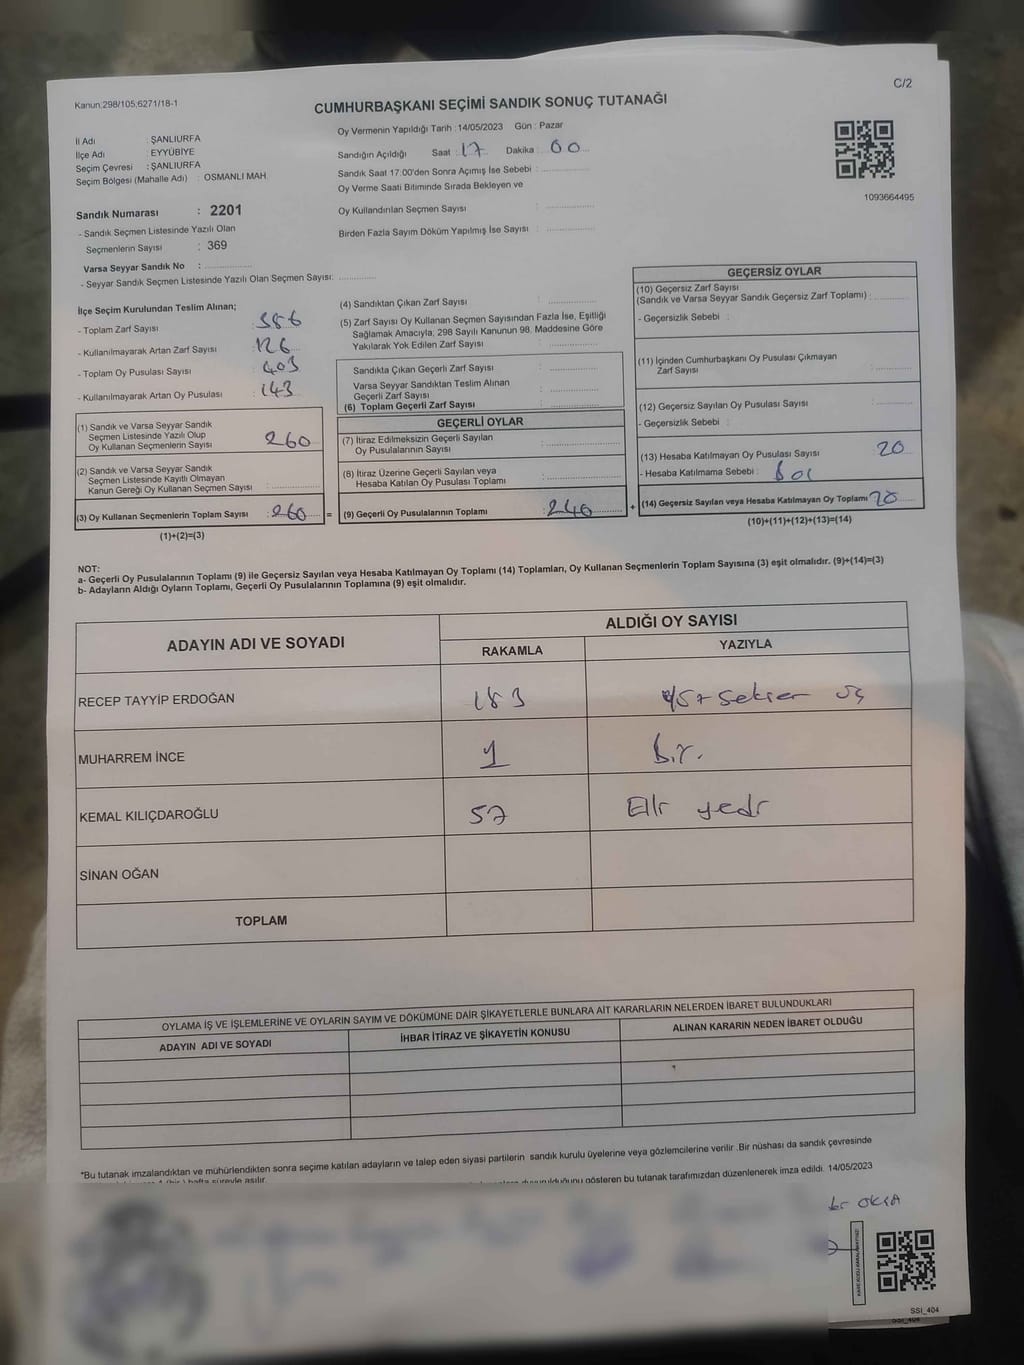 C/2
Kanun:298/105;6271/18-1
CUMHURBAŞKANI SEÇİMİ SANDIK SONUÇ TUTANAĞI
İl Adı : ŞANLIURFA
İlçe Adı : EYYÜBİYE
Seçim Çevresi : ŞANLIURFA
Seçim Bölgesi (Mahalle Adı) : OSMANLI MAH.
Oy Vermenin Yapıldığı Tarih :14/05/2023 Gün : Pazar
Sandığın Açıldığı Saat : 17 Dakika : 00
Sandık Saat 17.00'den Sonra Açımış İse Sebebi :
Oy Verme Saati Bitiminde Sırada Bekleyen ve
Oy Kullandırılan Seçmen Sayısı :
Birden Fazla Sayım Döküm Yapılmış İse Sayısı :
1093664495
Sandık Numarası : 2201
- Sandık Seçmen Listesinde Yazılı Olan
Seçmenlerin Sayısı : 369
Varsa Seyyar Sandık No :
- Seyyar Sandık Seçmen Listesinde Yazılı Olan Seçmen Sayısı:
İlçe Seçim Kurulundan Teslim Alınan;
- Toplam Zarf Sayısı : 386
- Kullanılmayarak Artan Zarf Sayısı : 126
- Toplam Oy Pusulası Sayısı : 403
- Kullanılmayarak Artan Oy Pusulası : 143
(1) Sandık ve Varsa Seyyar Sandık
Seçmen Listesinde Yazılı Olup
Oy Kullanan Seçmenlerin Sayısı : 260
(2) Sandık ve Varsa Seyyar Sandık
Seçmen Listesinde Kayıtlı Olmayan
Kanun Gereği Oy Kullanan Seçmen Sayısı :
(3) Oy Kullanan Seçmenlerin Toplam Sayısı : 260 =
(1)+(2)=(3)
(4) Sandıktan Çıkan Zarf Sayısı :
(5) Zarf Sayısı Oy Kullanan Seçmen Sayısından Fazla İse, Eşitliği
Sağlamak Amacıyla; 298 Sayılı Kanunun 98. Maddesine Göre
Yakılarak Yok Edilen Zarf Sayısı :
Sandıkta Çıkan Geçerli Zarf Sayısı :
Varsa Seyyar Sandıktan Teslim Alınan
Geçerli Zarf Sayısı :
(6) Toplam Geçerli Zarf Sayısı :
GEÇERLİ OYLAR
(7) İtiraz Edilmeksizin Geçerli Sayılan
Oy Pusulalarının Sayısı :
(8) İtiraz Üzerine Geçerli Sayılan veya
Hesaba Katılan Oy Pusulası Toplamı :
(9) Geçerli Oy Pusulalarının Toplamı : 240 +
GEÇERSİZ OYLAR
(10) Geçersiz Zarf Sayısı
(Sandık ve Varsa Seyyar Sandık Geçersiz Zarf Toplamı) :
- Geçersizlik Sebebi :
(11) İçinden Cumhurbaşkanı Oy Pusulası Çıkmayan
Zarf Sayısı :
(12) Geçersiz Sayılan Oy Pusulası Sayısı :
- Geçersizlik Sebebi :
(13) Hesaba Katılmayan Oy Pusulası Sayısı : 20
- Hesaba Katılmama Sebebi :
(14) Geçersiz Sayılan veya Hesaba Katılmayan Oy Toplamı : 20
(10)+(11)+(12)+(13)=(14)
NOT:
a- Geçerli Oy Pusulalarının Toplamı (9) ile Geçersiz Sayılan veya Hesaba Katılmayan Oy Toplamı (14) Toplamları, Oy Kullanan Seçmenlerin Toplam Sayısına (3) eşit olmalıdır. (9)+(14)=(3)
b- Adayların Aldığı Oyların Toplamı, Geçerli Oy Pusulalarının Toplamına (9) eşit olmalıdır.
ADAYIN ADI VE SOYADI
ALDIĞI OY SAYISI
RAKAMLA YAZIYLA
RECEP TAYYİP ERDOĞAN 183 yüz seksen üç
MUHARREM İNCE 1 Bir
KEMAL KILIÇDAROĞLU 57 Elli yedi
SİNAN OĞAN
TOPLAM
OYLAMA İŞ VE İŞLEMLERİNE VE OYLARIN SAYIM VE DÖKÜMÜNE DAİR ŞİKAYETLERLE BUNLARA AİT KARARLARIN NELERDEN İBARET BULUNDUKLARI
ADAYIN ADI VE SOYADI İHBAR İTİRAZ VE ŞİKAYETİN KONUSU ALINAN KARARIN NEDEN İBARET OLDUĞU
*Bu tutanak imzalandıktan ve mühürlendikten sonra seçime katılan adayların ve talep eden siyasi partilerin sandık kurulu üyelerine veya gözlemcilerine verilir .Bir nüshası da sandık çevresinde
1 (bir) hafta süreyle asılır.
duyurulduğunu gösteren bu tutanak tarafımızdan düzenlenerek imza edildi. 14/05/2023
SSI_404
SSI_404